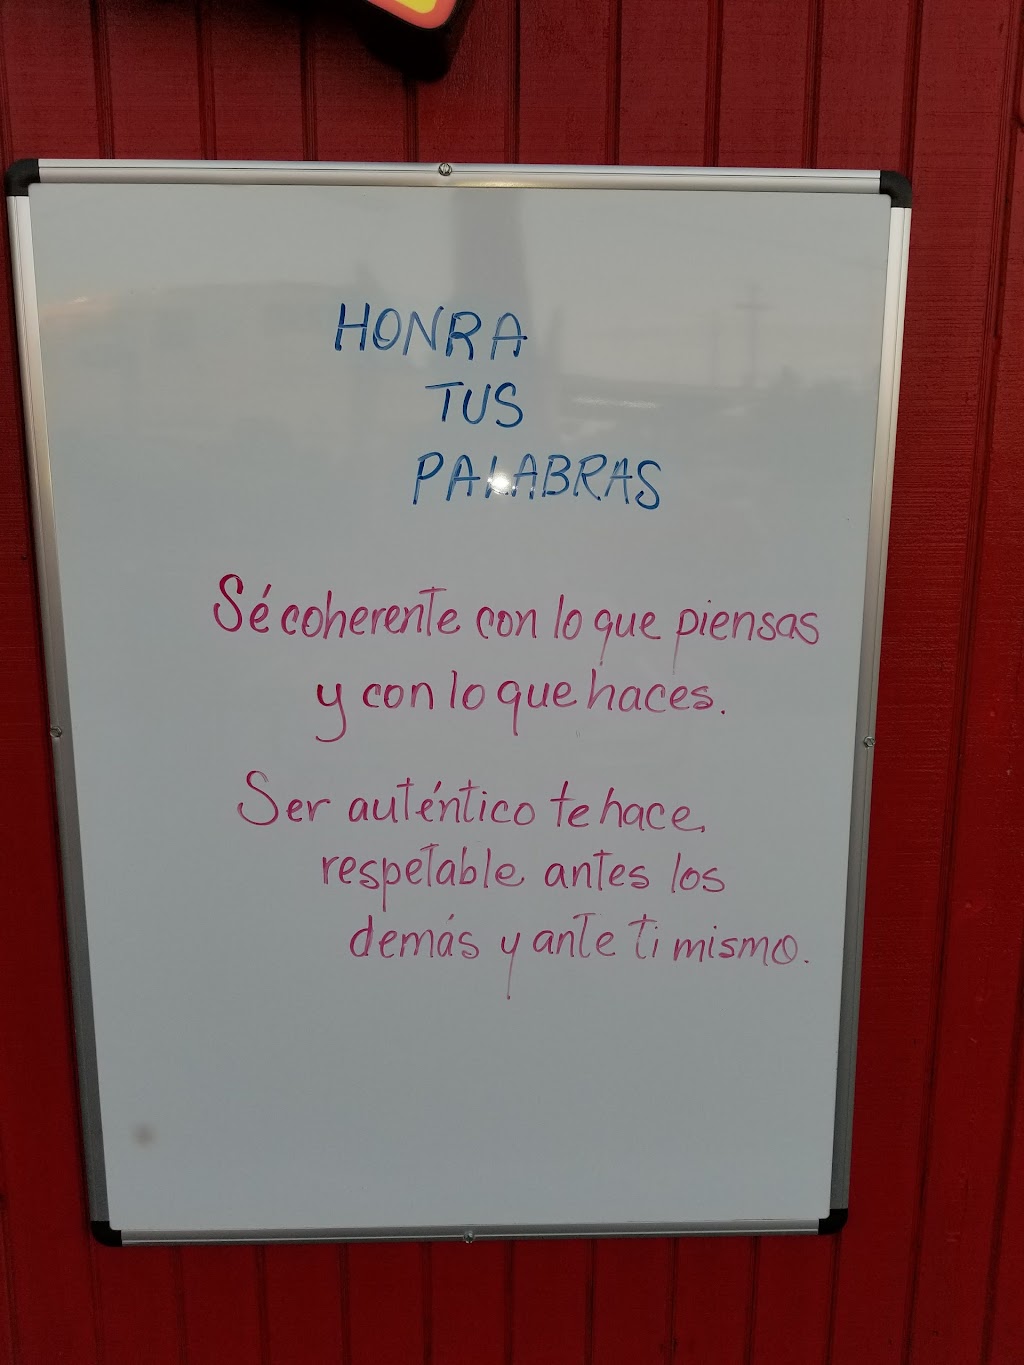 HONRA
TUS
PALABRAS
Sé coherente con lo que piensas
y con lo que haces.
Ser auténtico te hace
respetable antes los
demás y ante ti mismo.